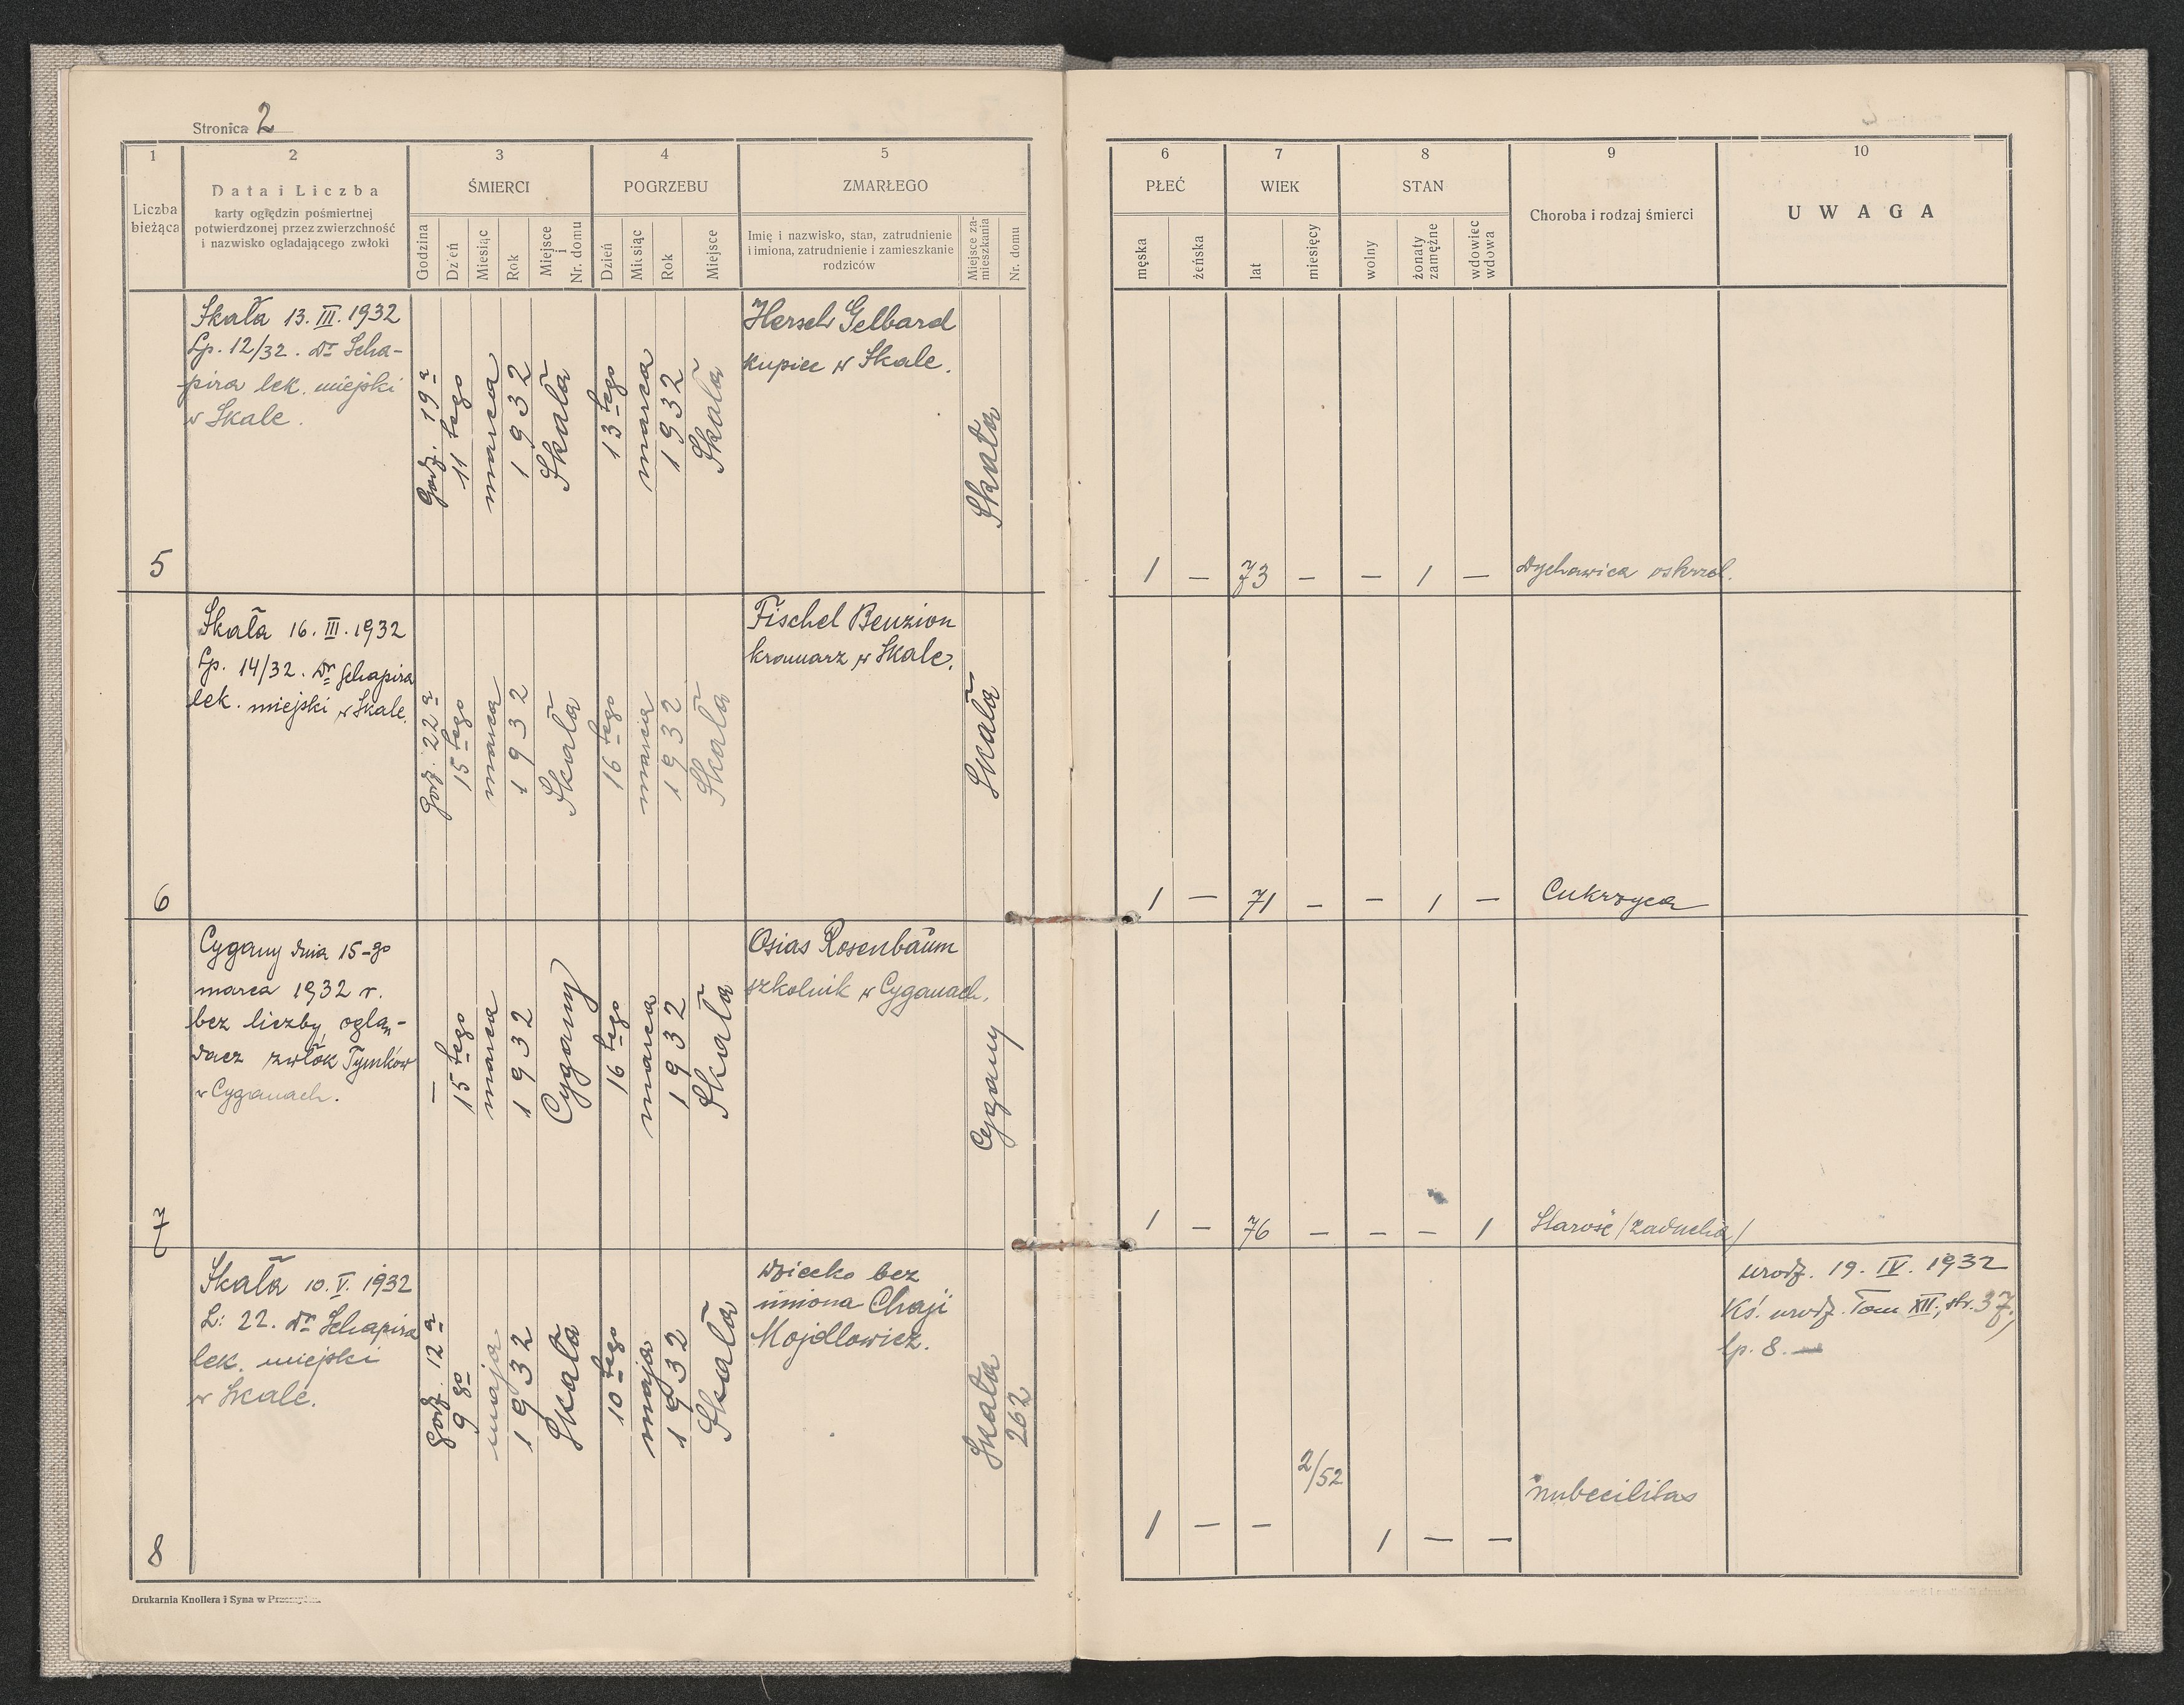 Stronica 2
1 2 3 4 5
Liczba bieżąca
Data i Liczba
karty oględzin pośmiertnej
potwierdzonej przez zwierzchność
i nazwisko ogladającego zwłoki
ŚMIERCI
Godzina
Dzień
Miesiąc
Rok
Miejsce i Nr. domu
POGRZEBU
Dzień
Miesiąc
Rok
Miejsce
ZMARŁEGO
Imię i nazwisko, stan, zatrudnienie
i imiona, zatrudnienie i zamieszkanie
rodziców
Miejsce za-
mieszkania
Nr. domu
6 7 8 9 10
PŁEĆ
męska
żeńska
WIEK
lat
miesięcy
STAN
wolny
żonaty
zamężne
wdowiec
wdowa
Choroba i rodzaj śmierci
UWAGA
5
Skała 13. III. 1932
Lp. 12/32. Dr Scha-
pira lek. miejski
w Skale.
Godz. 19a
11 tego
marca
1932
Skała
13 tego
marca
1932
Skała
Hersch Gelbard
kupiec w Skale.
Skała
1 — 73 — — 1 —
Dychawica oskrzel.
6
Skała 16. III. 1932
Lp. 14/32. Dr Schapira
lek. miejski w Skale.
Godz. 22a
15 tego
marca
1932
Skała
16 tego
marca
1932
Skała
Fischel Benzion
kramarz w Skale.
Skała
1 — 71 — — 1 —
Cukrzyca
7
Cygany dnia 15-go
marca 1932 r.
bez liczby, oglą-
dacz zwłok Tymków
w Cyganach.
—
15 tego
marca
1932
Cygany
16 tego
marca
1932
Skała
Osias Rosenbaum
szkolnik w Cyganach.
Cygany
1 — 76 — — — 1
Starość /zaducha/
8
Skała 10. V. 1932
L: 22. Dr Schapira
lek. miejski
w Skale.
Godz. 12a
9 go
maja
1932
Skała
10 tego
maja
1932
Skała
Dziecko bez
imiona Chaji
Mojdlowicz.
Skała
262
1 — — 2/52 1 — —
imbecilitas
urodz. 19. IV. 1932
Ks. urodz. Tom XII, str. 37,
lp. 8. —
Drukarnia Knollera i Syna w